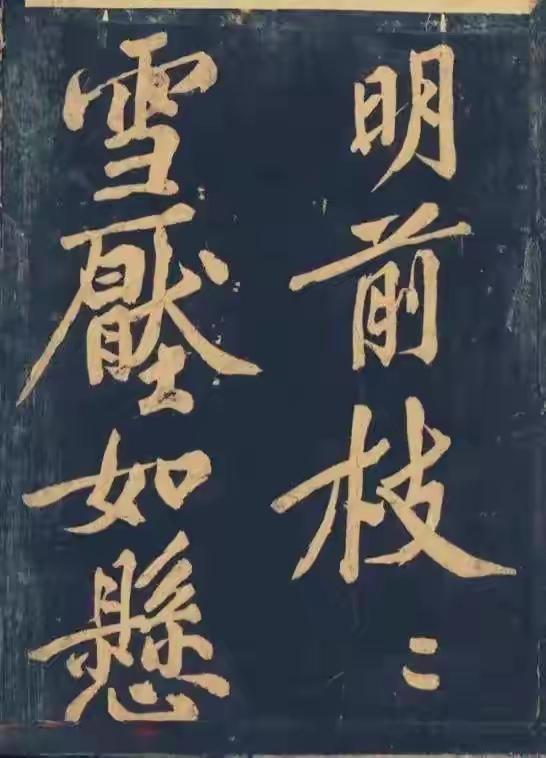 明前枝〻
雪壓如懸